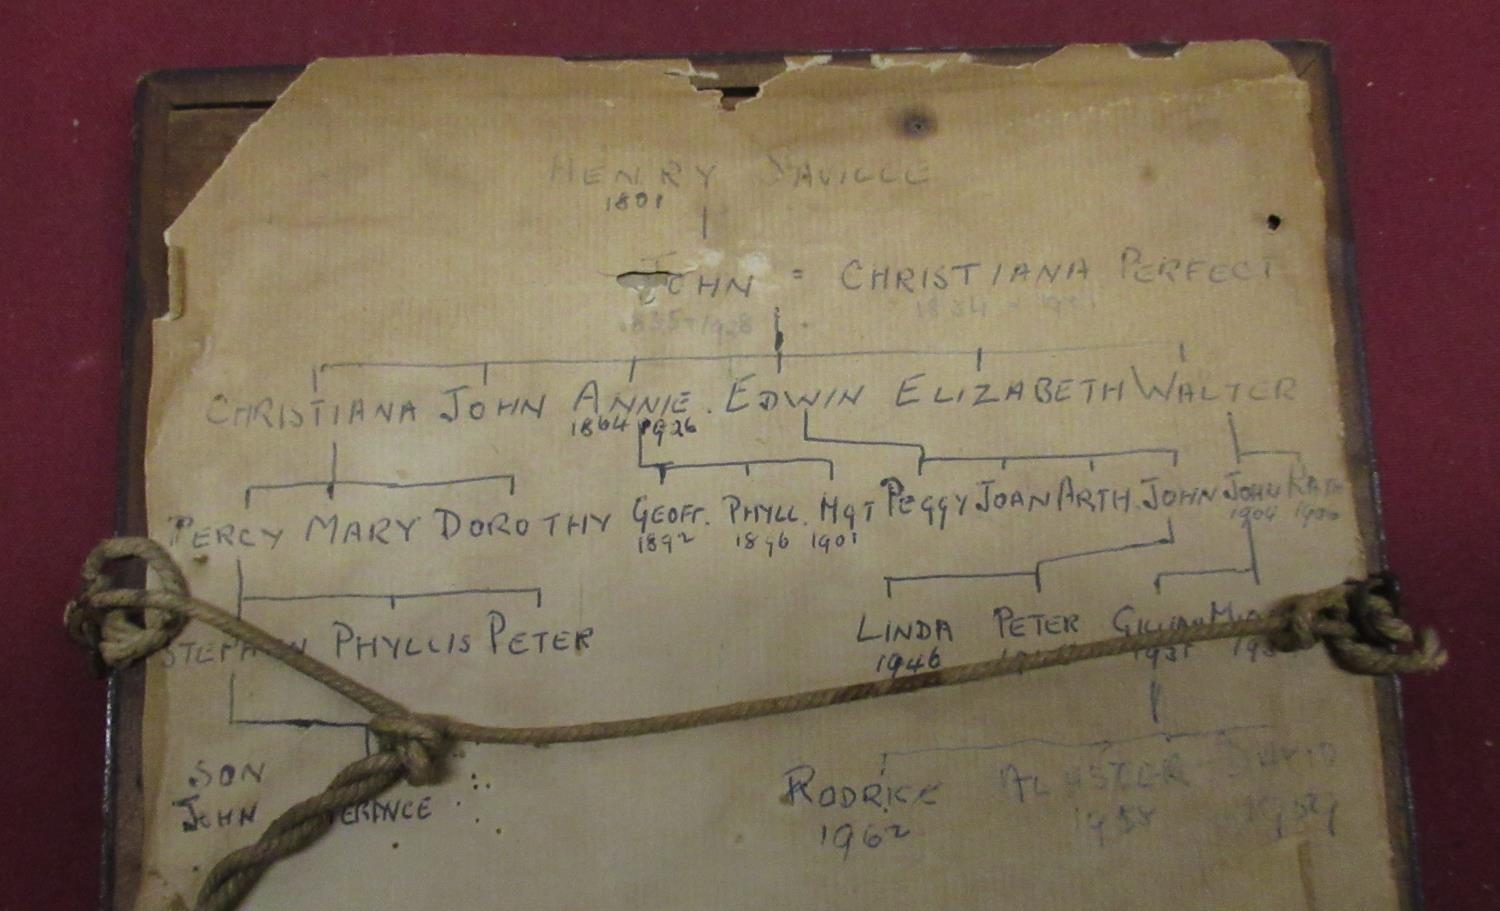 HENRY SAVILLE
1801
JOHN = CHRISTIANA PERFECT
1834
CHRISTIANA JOHN ANNIE. EDWIN ELIZABETH WALTER
1864 1926
PERCY MARY DOROTHY GEOFF. PHYLL. MGT PEGGY JOAN ARTH. JOHN JOHN KATH
1892 1896 1901 1904
STEPHEN PHYLLIS PETER LINDA PETER GILLIAN
1946
SON RODRICK ALASTER DAVID
JOHN TERANCE 1962 1959